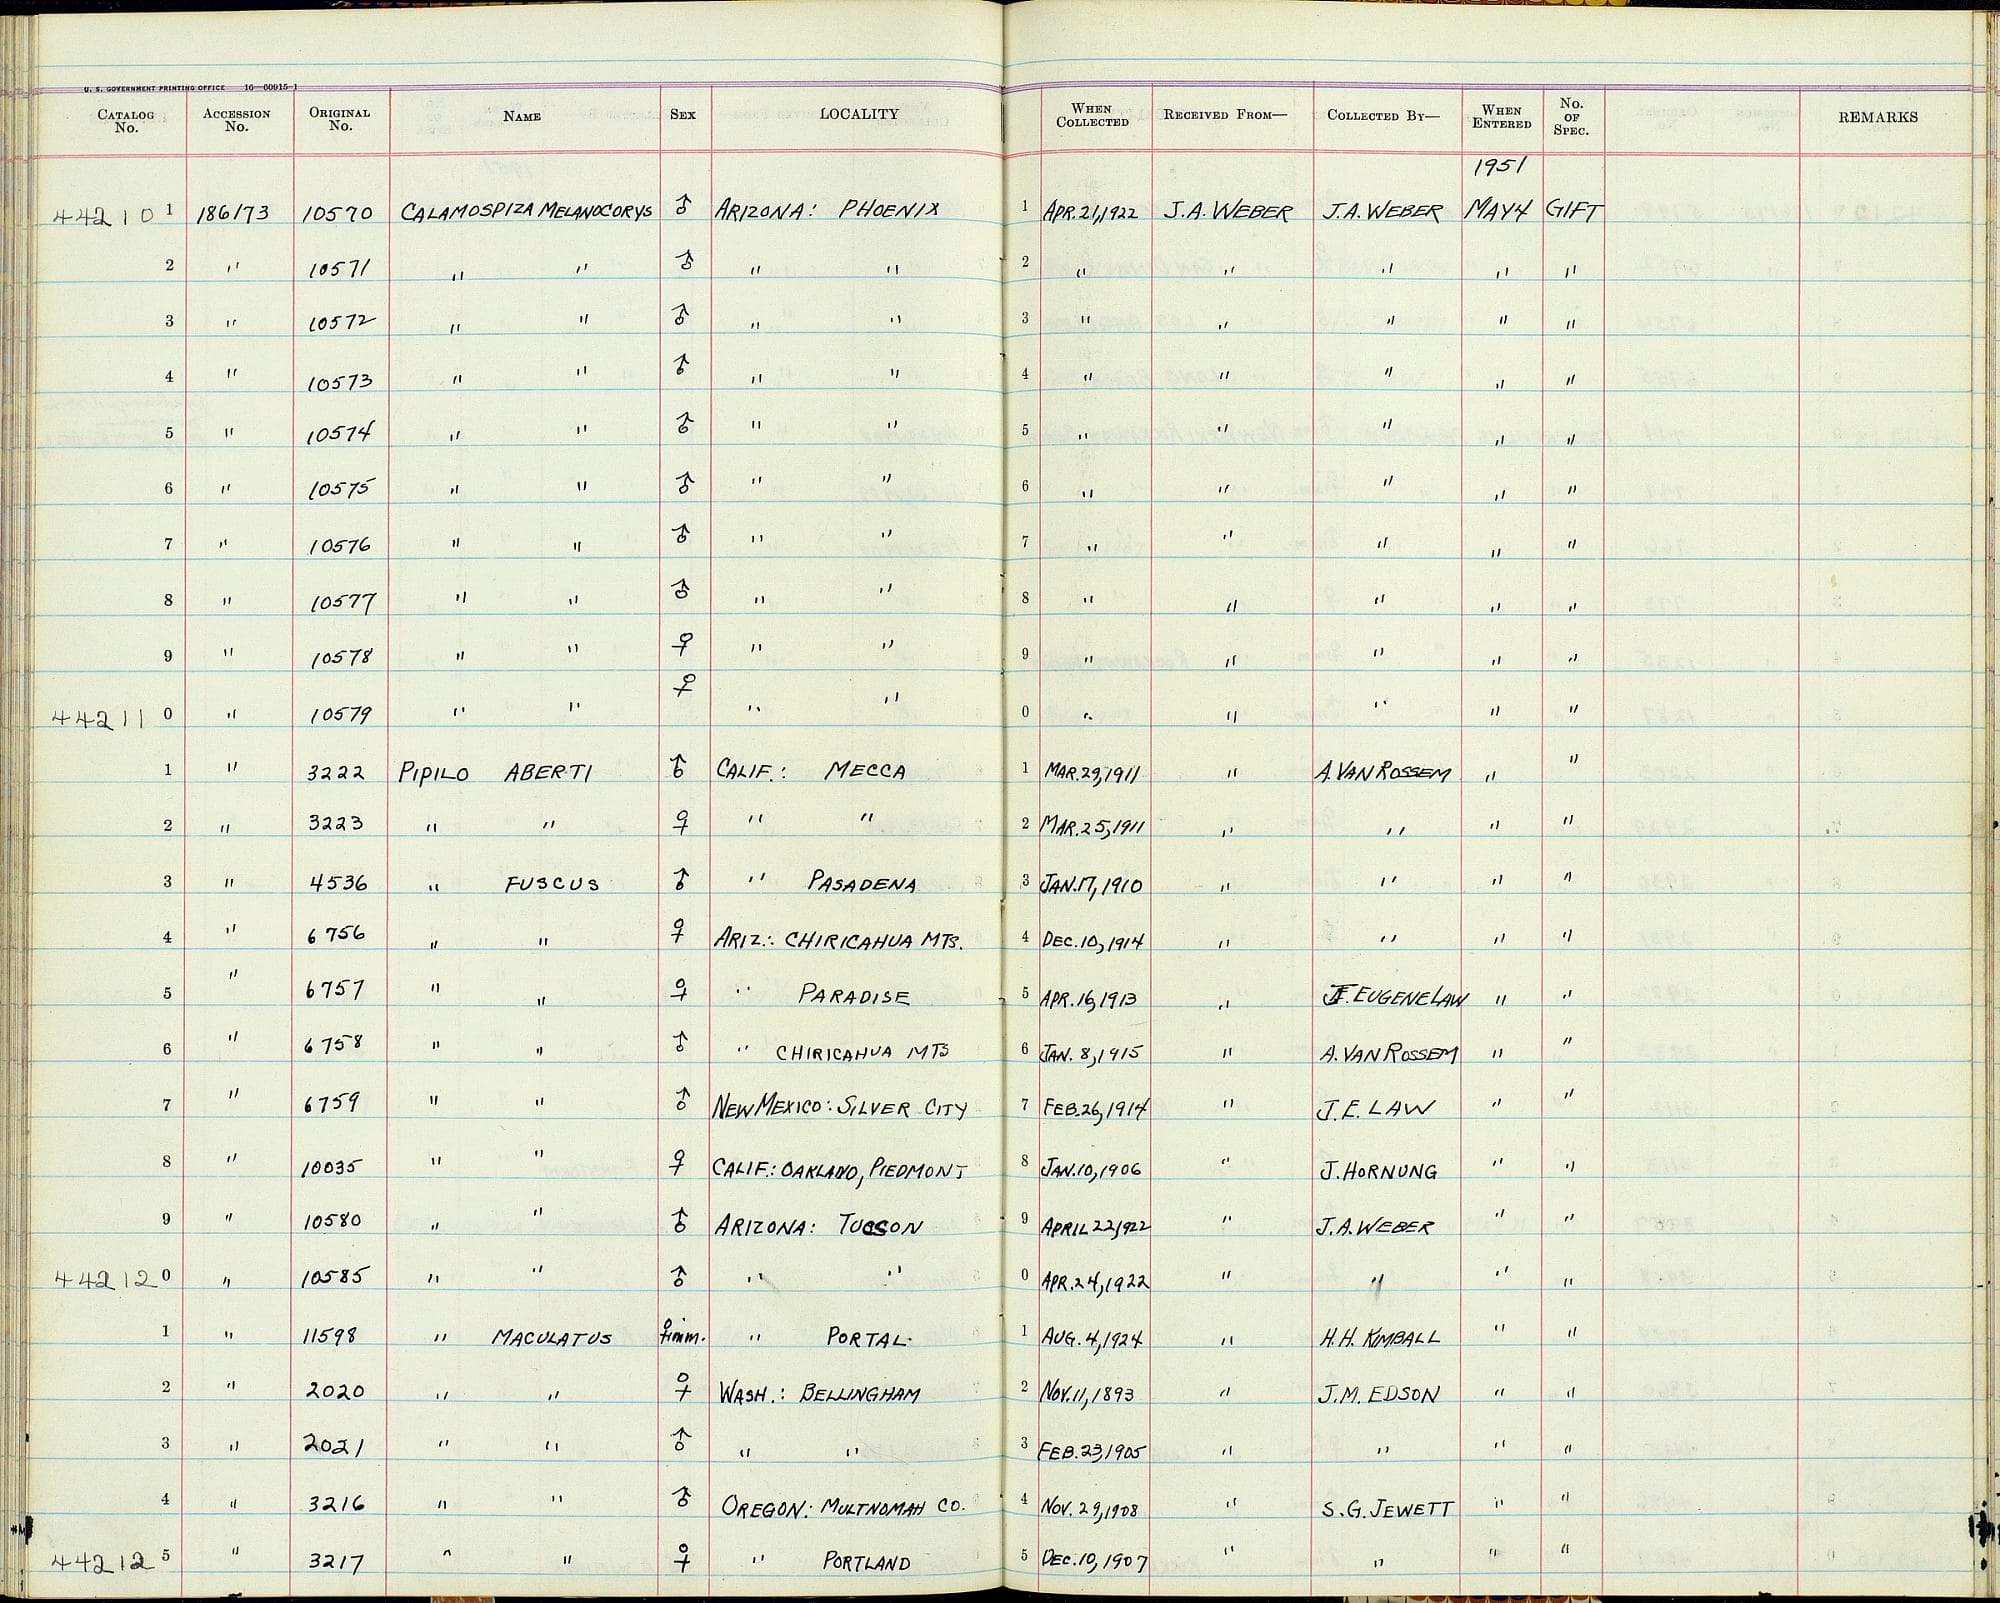 U. S. GOVERNMENT PRINTING OFFICE 16—60915-1
CATALOG No. ACCESSION No. ORIGINAL No. NAME SEX LOCALITY WHEN COLLECTED RECEIVED FROM— COLLECTED BY— WHEN ENTERED No. OF SPEC. REMARKS
1951
44210 1 186173 10570 CALAMOSPIZA MELANOCORYS ♂ ARIZONA: PHOENIX 1 APR. 21, 1922 J.A. WEBER J.A. WEBER MAY 4 GIFT
2 " 10571 " " ♂ " " 2 " " " " "
3 " 10572 " " ♂ " " 3 " " " " "
4 " 10573 " " ♂ " " 4 " " " " "
5 " 10574 " " ♂ " " 5 " " " " "
6 " 10575 " " ♂ " " 6 " " " " "
7 " 10576 " " ♂ " " 7 " " " " "
8 " 10577 " " ♂ " " 8 " " " " "
9 " 10578 " " ♀ " " 9 " " " " "
44211 0 " 10579 " " ♀ " " 0 " " " " "
1 " 3222 PIPILO ABERTI ♂ CALIF.: MECCA 1 MAR. 29, 1911 " A. VAN ROSSEM " "
2 " 3223 " " ♀ " " 2 MAR. 25, 1911 " " " "
3 " 4536 " FUSCUS ♂ " PASADENA 3 JAN. 17, 1910 " " " "
4 " 6756 " " ♀ ARIZ.: CHIRICAHUA MTS. 4 DEC. 10, 1914 " " " "
5 " 6757 " " ♀ " PARADISE 5 APR. 16, 1913 " J. EUGENE LAW " "
6 " 6758 " " ♂ " CHIRICAHUA MTS 6 JAN. 8, 1915 " A. VAN ROSSEM " "
7 " 6759 " " ♂ NEW MEXICO: SILVER CITY 7 FEB. 26, 1914 " J. E. LAW " "
8 " 10035 " " ♀ CALIF.: OAKLAND, PIEDMONT 8 JAN. 10, 1906 " J. HORNUNG " "
9 " 10580 " " ♂ ARIZONA: TUCSON 9 APRIL 22, 1922 " J.A. WEBER " "
44212 0 " 10585 " " ♂ " " 0 APR. 24, 1922 " " " "
1 " 11598 " MACULATUS ♀ imm. " PORTAL 1 AUG. 4, 1924 " H.H. KIMBALL " "
2 " 2020 " " ♀ WASH.: BELLINGHAM 2 NOV. 11, 1893 " J.M. EDSON " "
3 " 2021 " " ♂ " " 3 FEB. 23, 1905 " " " "
4 " 3216 " " ♂ OREGON: MULTNOMAH CO. 4 NOV. 29, 1908 " S.G. JEWETT " "
44212 5 " 3217 " " ♀ " PORTLAND 5 DEC. 10, 1907 " " " "